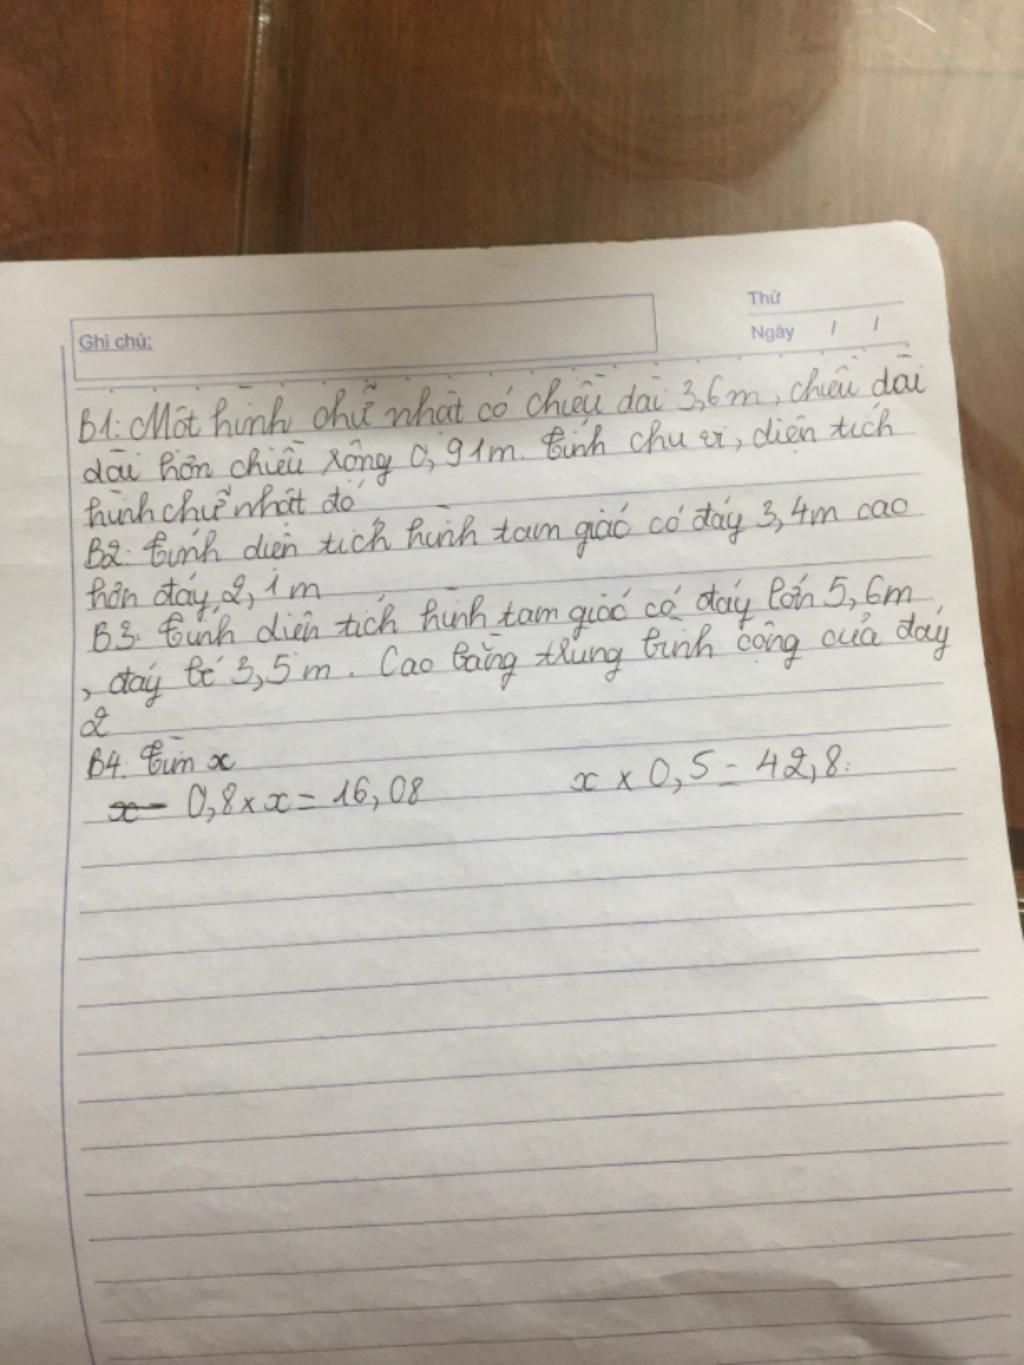 Thứ
Ghi chú:
Ngày / /
B1: Một hình chữ nhật có chiều dài 3,6m, chiều dài
dài hơn chiều rộng 0,91m. Tính chu vi, diện tích
hình chữ nhật đó
B2: Tính diện tích hình tam giác có đáy 3,4m cao
hơn đáy 2,1m
B3: Tính diện tích hình tam giác có đáy lớn 5,6m
, đáy bé 3,5m. Cao bằng trung bình cộng của đáy
2
B4: Tìm x
0,8 × x = 16,08 x × 0,5 = 42,8